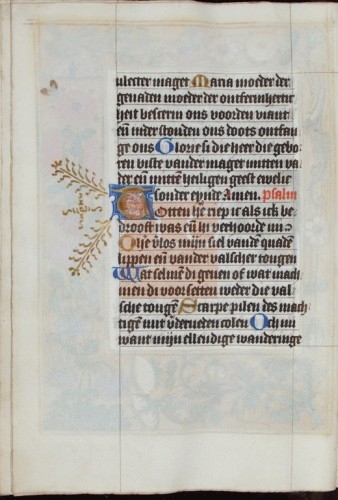 ulecter maget Maria moeder der
genaden moeder der ontfermhertic
heit bescerm ons voorden viant
eñ inder stonden ons doots ontfan
ge ons Glorie si di heer die gebo
ren biste vander maget mitten va
der eñ mittē heiligen geest ewelic
sonder eynde Amen. psalm
Totten he riep ic als ick be
droeft was eñ hi verhoorde mi
O he v̄los mijn siel vandē quadē
lippen eñ vander valscher tongen
Wat selmē di geuen of wat mach
men di voorsetten weder die val
sche tongē Scarpe pilen des mach
tigē mit v̄derueden colen Och mi
want mijn ellendige wanderinge